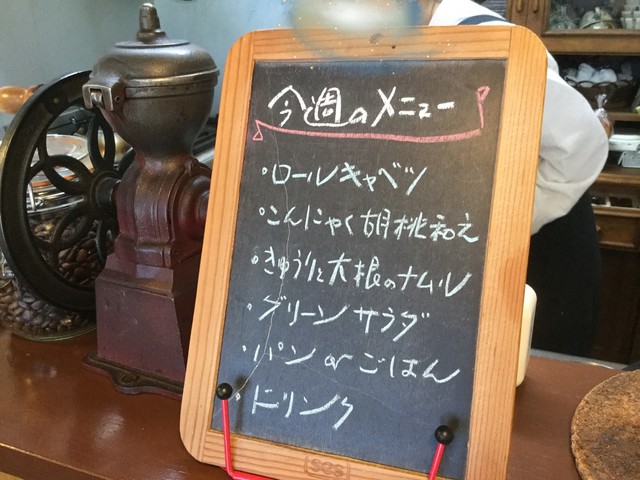 今週のメニュー
・ロールキャベツ
・こんにゃく胡桃和え
・きゅうりと大根のナムル
・グリーンサラダ
・パン or ごはん
・ドリンク